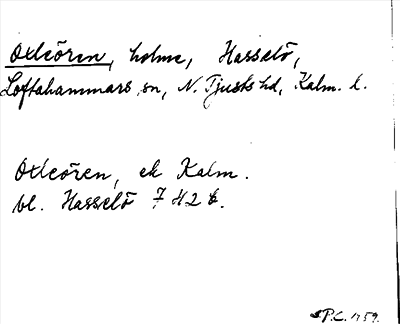 Oxleören, holme, Hasselö,
Loftahammars sn, N. Tjusts hd, Kalm. l.
Oxleören, ek Kalm.
bl. Hasselö 7 H 2 b.
P.C. 1959.